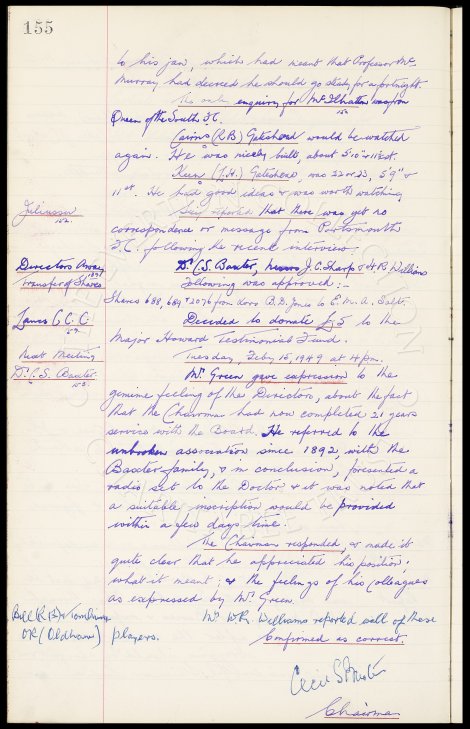 155
to his jaw, which had meant that Professor Mc
Murray had decreed he should go steady for a fortnight.
The only enquiry for McIlhatton was from
150
Queen of the South F.C.
Cairns (R.B) Gateshead would be watched
again. He was nicely built, about 5'10" + 11st.
(L.H.) Gateshead, was 22 or 23, 5'9" &
11st. He had good ideas & was worth watching
Juliussen
152.
reported that there was yet no
correspondence or message from Portsmouth
F.C. following the recent interview.
Directors Away
Dr. C.S. Baxter, Messrs J.C. Sharp & W.R. Williams
Transfer of Shares
1891
Following was approved:-
Shares 688, 689 & 2076 from B.D. Jones to E.M.A.
Lancs C.C.C.
Decided to donate £5 to the
Major Howard Testimonial Fund.
Next Meeting
Tuesday Feby 15, 1949 at 4pm.
Dr. C.S. Baxter.
153.
Mr. Green gave expression to the
genuine feeling of the Directors, about the fact
that the Chairman had now completed 21 years
service with the Board. He referred to the
unbroken association since 1892 with the
Baxter family, & in conclusion, presented a
radio set to the Doctor & it was noted that
a suitable inscription would be provided
within a few days time.
The Chairman responded, & made it
quite clear that he appreciated his position:
what it meant; & the feelings of his Colleagues
as expressed by Mr. Green.
Mr W.R. Williams reported well of these
OR (Oldham) players.
Confirmed as correct.
Cecil S Baxter
Chairman